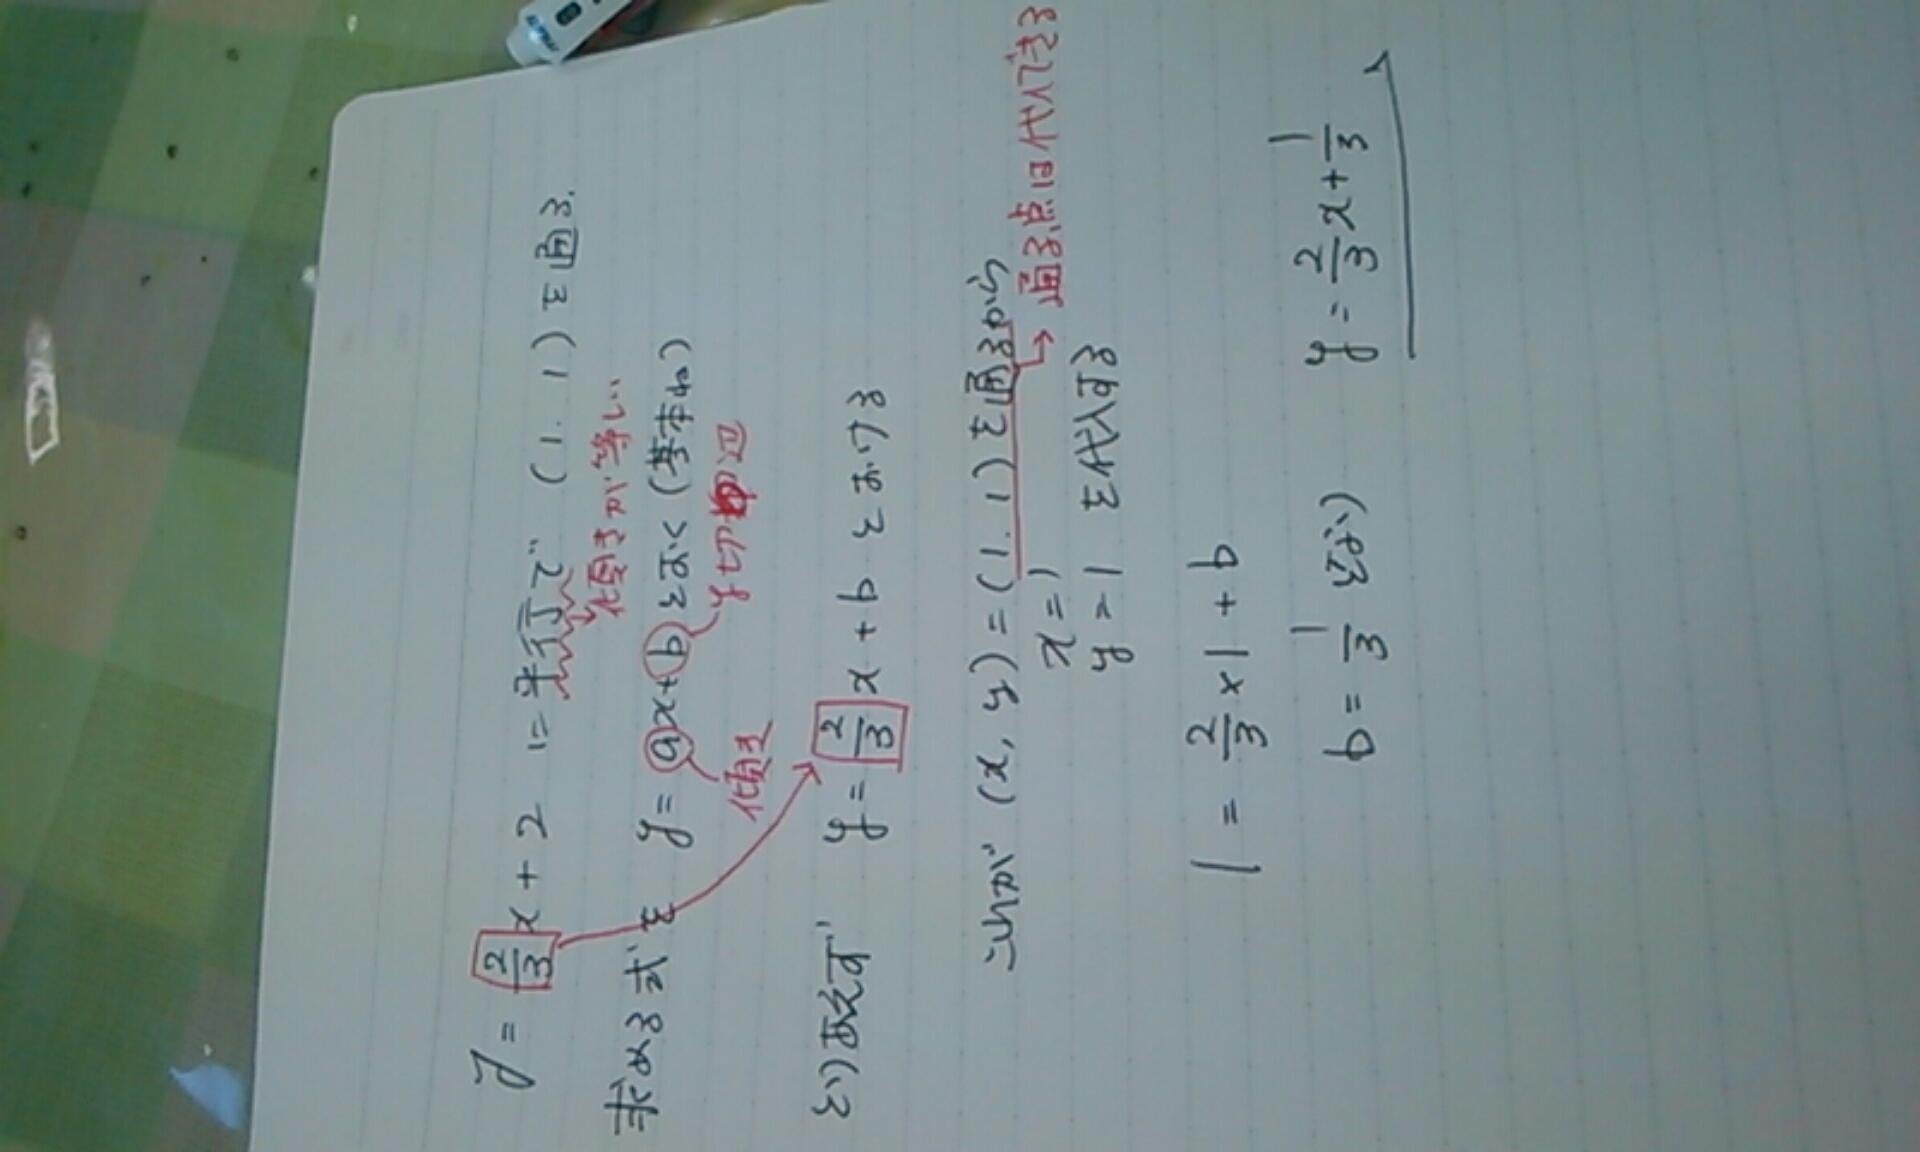 y = 2/3 x + 2 に平行で (1. 1) を通る.
傾きが等しい
求める式を y = ax + b とおく (基本ね)
傾き
y切片
とりあえず y = 2/3 x + b とおける
これが (x, y) = (1. 1) を通るから
→ 通る点は代入できる
x = 1
y = 1 を代入する
1 = 2/3 × 1 + b
b = 1/3 より y = 2/3 x + 1/3